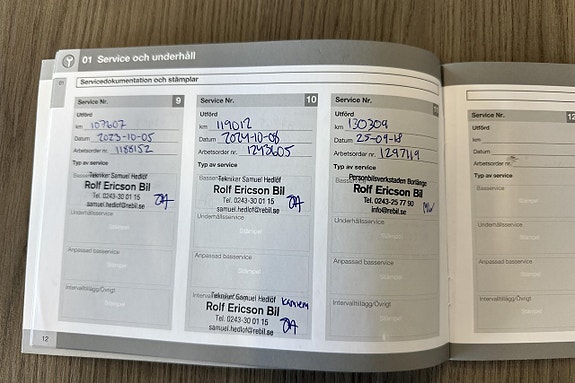 01 Service och underhåll
01
Servicedokumentation och stämplar
Service Nr. 9
Utförd
km 107607
Datum 2023-10-05
Arbetsorder nr. 1188152
Typ av service
Tekniker Samuel Hedlöf
Rolf Ericson Bil
Tel. 0243-30 01 15
samuel.hedlof@rebil.se
Underhållsservice
Stämpel
Anpassad basservice
Stämpel
Intervalltillägg/Övrigt
12
Service Nr. 10
Utförd
km 119012
Datum 2024-10-08
Arbetsorder nr. 1243605
Typ av service
Tekniker Samuel Hedlöf
Rolf Ericson Bil
Tel. 0243-30 01 15
samuel.hedlof@rebil.se
Underhållsservice
Stämpel
Anpassad basservice
Stämpel
Tekniker Samuel Hedlöf
Rolf Ericson Bil
Tel. 0243-30 01 15
samuel.hedlof@rebil.se
Service Nr.
Utförd
km 130309
Datum 25-09-18
Arbetsorder nr. 1297119
Typ av service
Personbilsverkstaden Borlänge
Rolf Ericson Bil
Tel. 0243-25 77 90
info@rebil.se
Underhållsservice
Stämpel
Anpassad basservice
Stämpel
Intervalltillägg/Övrigt
Stämpel
Service Nr. 12
Utförd
km
Datum
Arbetsorder nr.
Typ av service
Basservice
Stämpel
Underhållsservice
Stämpel
Anpassad basservice
Stämpel
Intervalltillägg/Övrigt
Stämpel